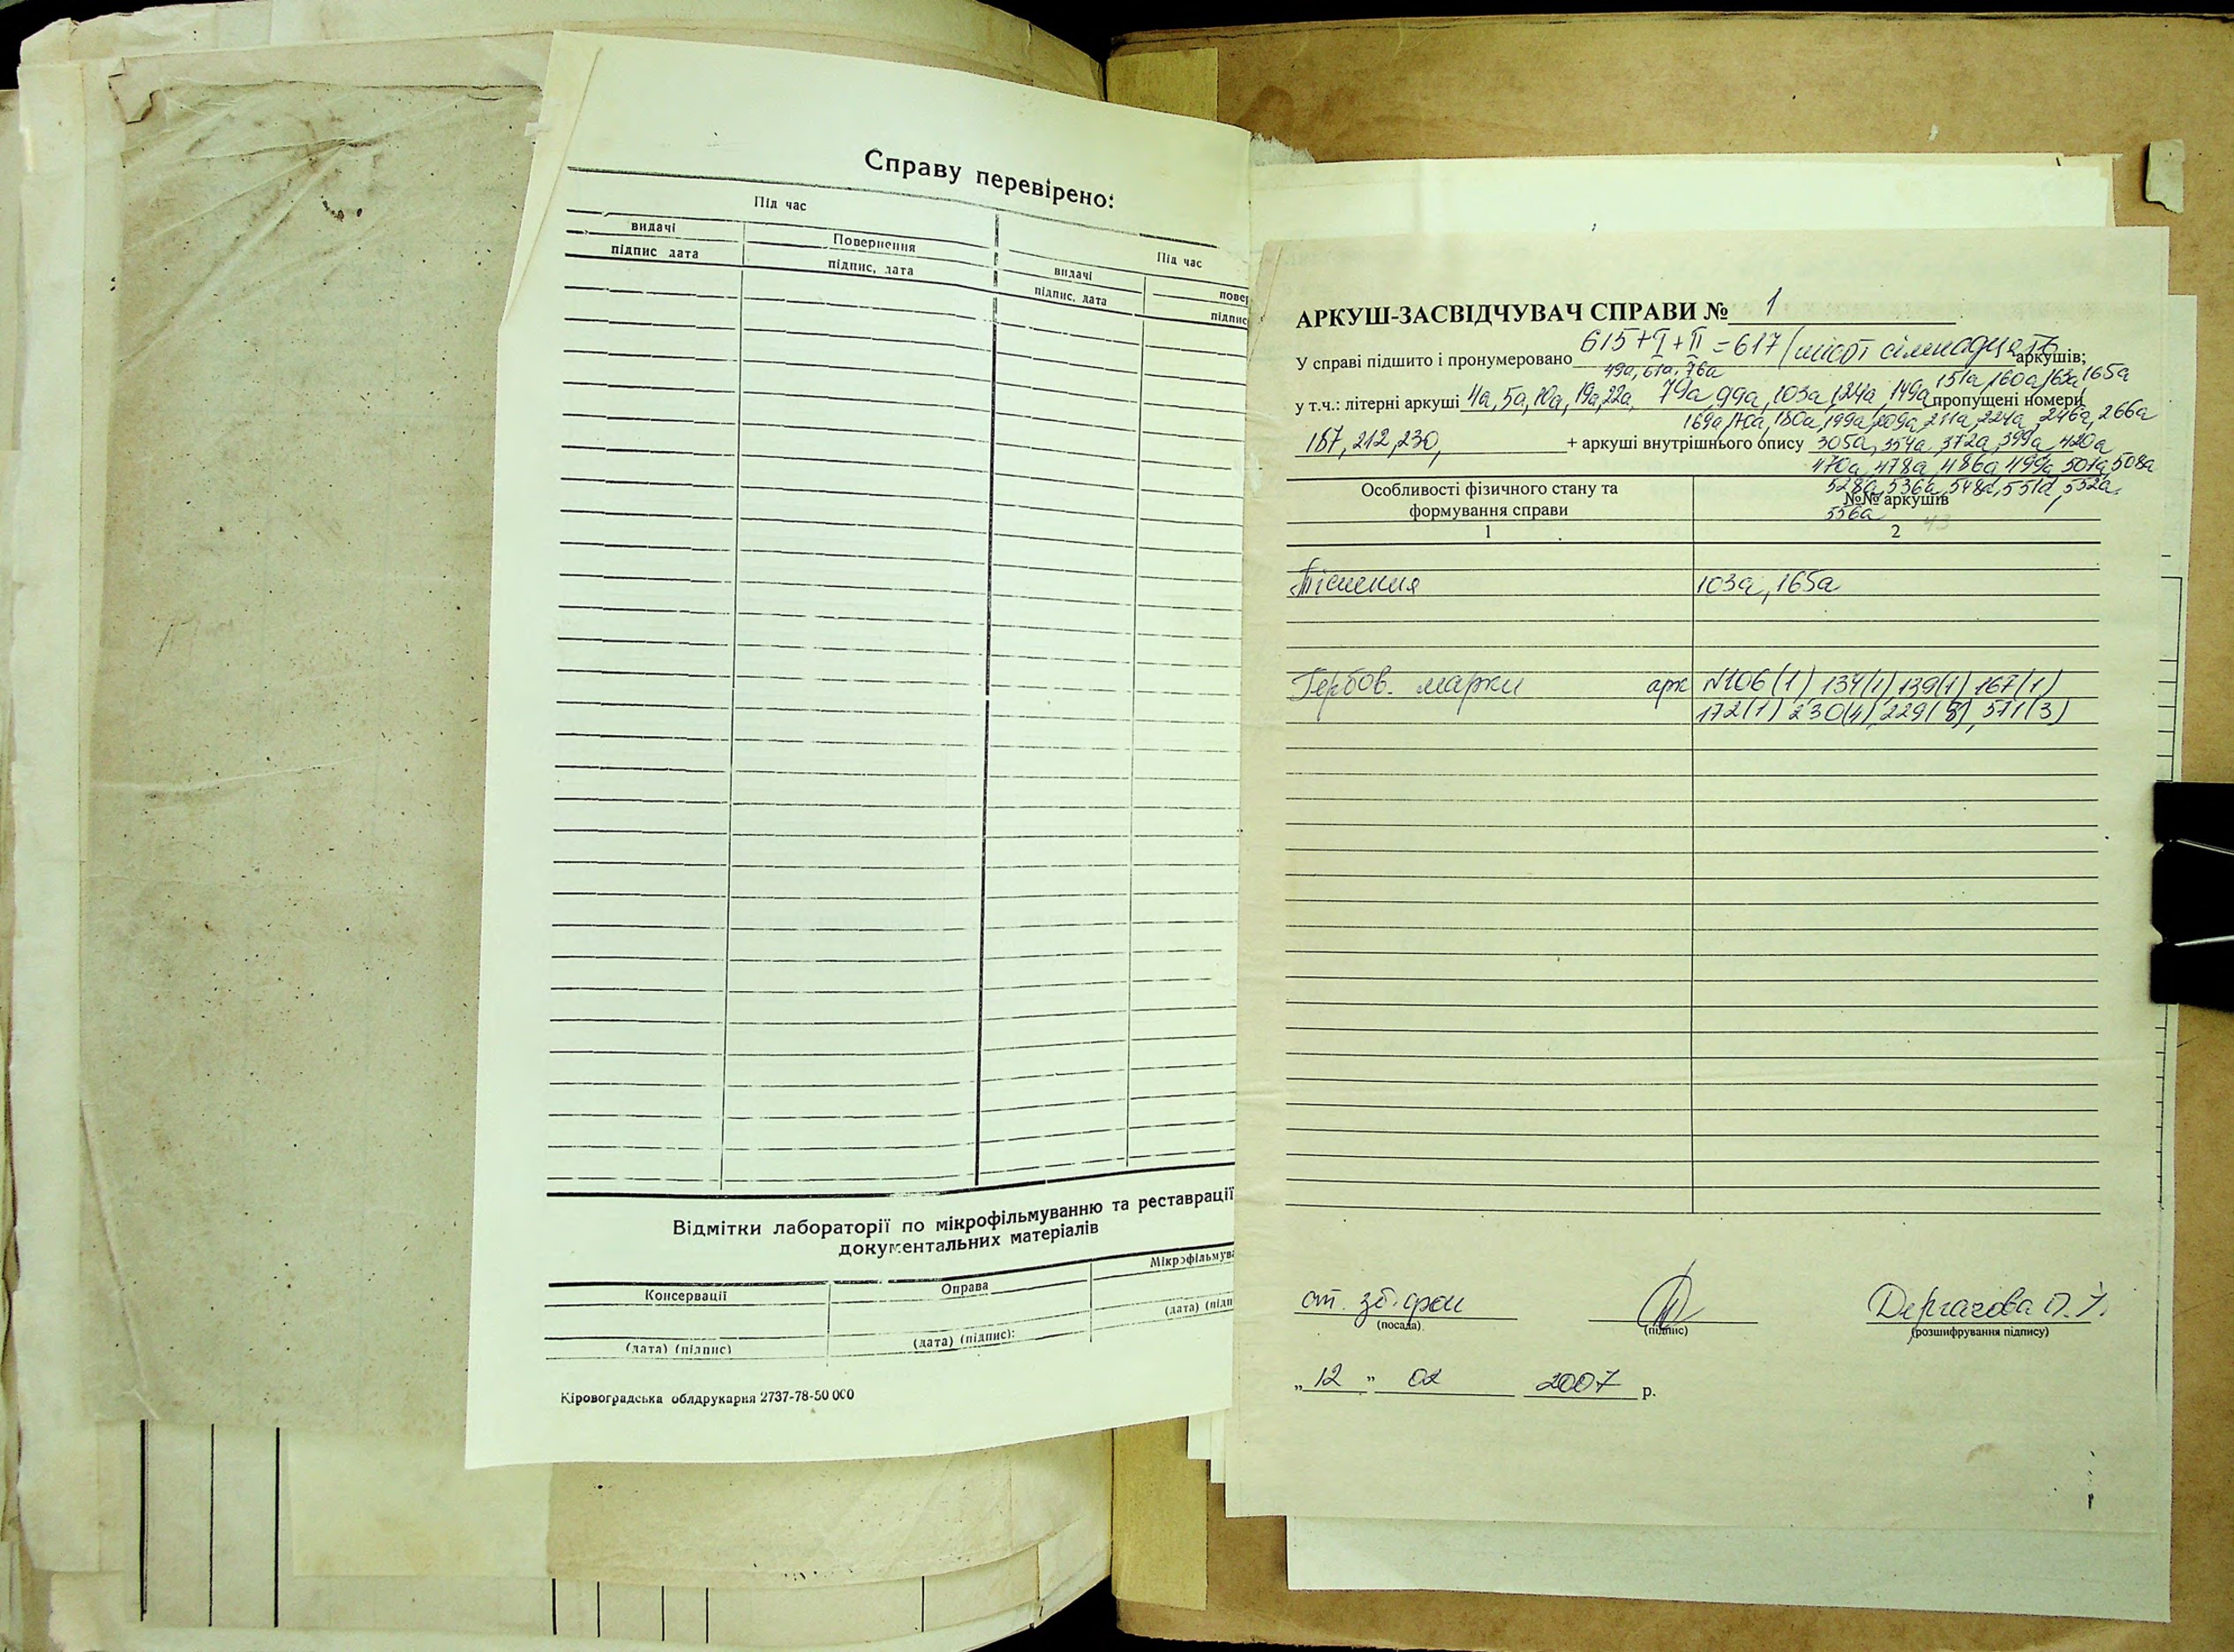 Справу перевірено:
Під час
видачі
Повернення
підпис дата
підпис, дата
Під час
видачі
повер
підпис, дата
підпис
Відмітки лабораторії по мікрофільмуванню та реставрації
документальних матеріалів
Консервації
Оправа
Мікрофільмува
(дата) (підпис)
(дата) (підпис):
(дата) (підп
Кіровоградська облдрукарня 2737-78-50 000
АРКУШ-ЗАСВІДЧУВАЧ СПРАВИ № 1
У справі підшито і пронумеровано 615+I+II=617 (шістсот сімнадцять аркушів;
49а, 61а, 76а
151а, 160а, 163а, 165а
у т.ч.: літерні аркуші 4а, 5а, 10а, 19а, 22а, 79а 99а, 103а, 124а, 149а пропущені номери
169а, 170а, 180а, 199а, 209а, 211а, 224а, 246а, 266а
187, 212, 230, + аркуші внутрішнього опису 305а, 354а, 372а, 399а, 420а
470а, 478а, 486а, 499а, 501а, 508а
528а, 536а, 548а, 551а, 552а,
Особливості фізичного стану та
формування справи
№№ аркушів
556а
43
1
2
Тіснення 103а, 165а
Гербов. марки арк №106(1) 134(1), 139(1) 167(1)
172(1) 230(4), 229(8), 571(3)
(посада)
(підпис)
Дергачова
(розшифрування підпису)
„ 12 " 02 2007 р.